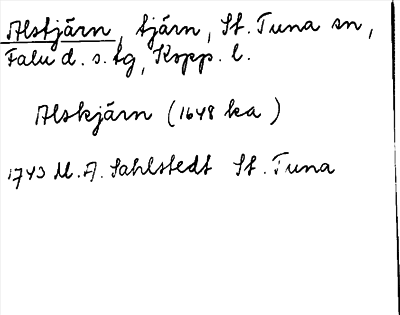 Alstjärn, tjärn, St. Tuna sn,
Falu d. s. tg, Kopp. l.
Alskjärn (1648 ka)
1743 M. A. Sahlstedt St. Tuna